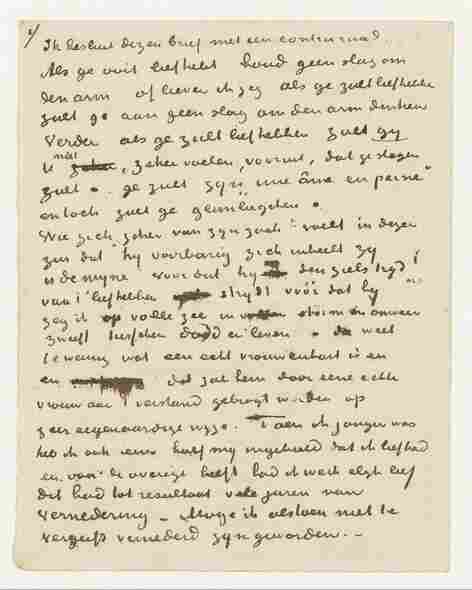 Ik besluit dezen brief met een
Als ge ooit liefhebt houd geen slag om
den arm of liever ik zeg als ge zult liefhebben
zult ge aan geen slag om den arm denken
Verder als ge zult liefhebben zult gij
U niet zeker voelen, vooruit, dat ge slagen
zult . ge zult zijn "une âme en peine"
en toch zult ge glimlachen .
Wie zich "zeker van zijn zaak" voelt in dezen
zin dat hij voorbarig zich inbeeldt zij
is de mijne vóór dat hij den zielsstrijd
van 't liefhebben strijdt vóór dat hij
zeg ik op volle zee in storm en onweer
zweeft tusschen dood en leven . weet
te weinig wat een echt vrouwenhart is en
en dat zal hem door eene echte
vrouw aan 't verstand gebragt worden op
zeer eigenaardige wijze. Toen ik jonger was
heb ik ook eens half mij ingebeeld dat ik liefhad
en voor de overige helft had ik werkelijk lief
dit had tot resultaat vele jaren van
vernedering . Moge ik niet te
vergeefs vernederd zijn geworden.—